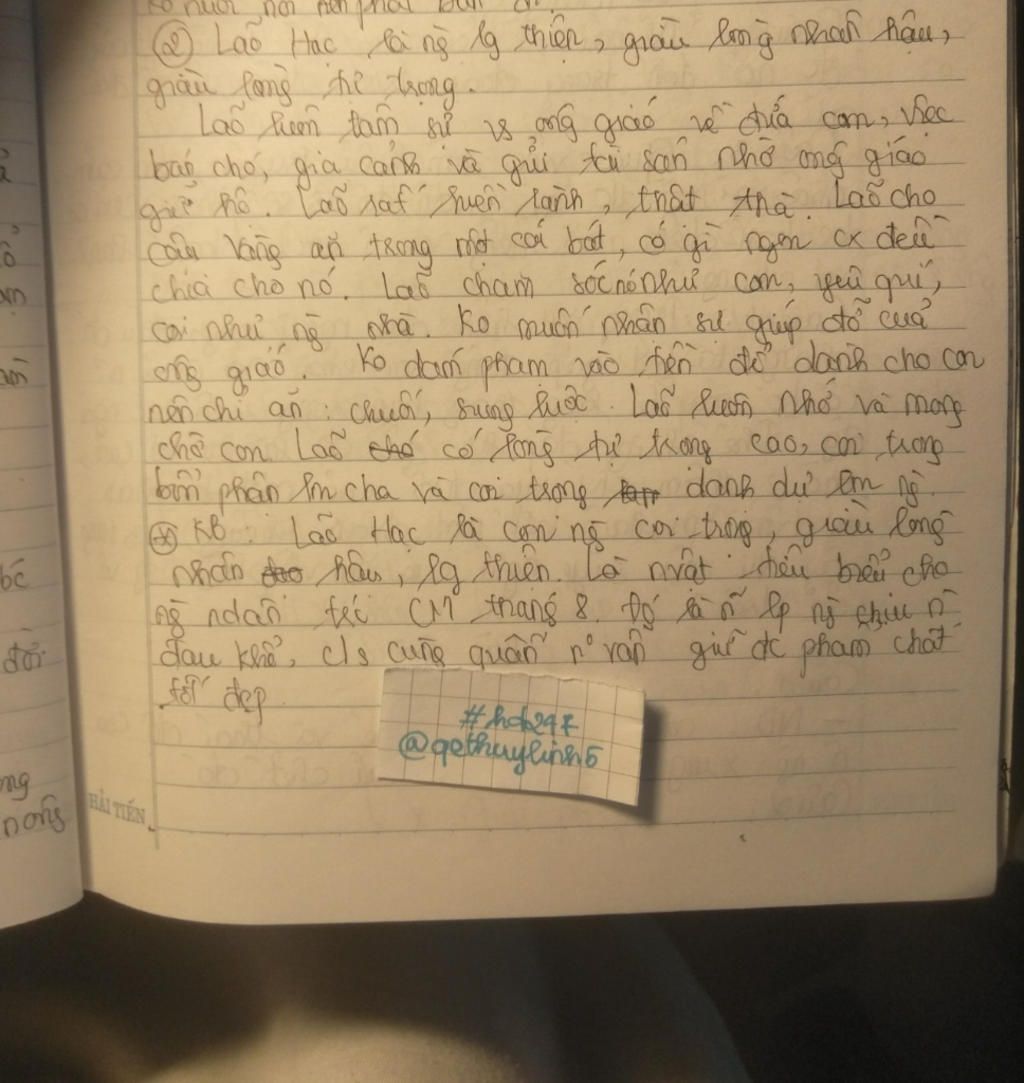 ko nuôi nổi nên phải bán đi.
② Lão Hạc là ng lg thiện, giàu lòng nhân hậu,
giàu lòng tự trọng.
Lão luôn tâm sự vs ông giáo về đứa con, việc
bán chó, gia cảnh và gửi tài sản nhờ ông giáo
giữ hộ. Lão rất hiền lành, thật thà. Lão cho
cậu Vàng ăn trong một cái bát, có gì ngon cx đều
chia cho nó. Lão chăm sóc nó như con, yêu quý,
coi như ng nhà. Ko muốn nhận sự giúp đỡ của
ông giáo. Ko dám phạm vào tiền để dành cho con
nên chỉ ăn: chuối, sung luộc. Lão luôn nhớ và mong
chờ con. Lão có lòng tự trọng cao, coi trọng
bổn phận lm cha và coi trọng danh dự lm ng.
* KB: Lão Hạc là con ng coi trọng, giàu lòng
nhân hậu, lg thiện. Là nvật tiêu biểu cho
ng ndân trc CM tháng 8. Đó là n~ lp ng chịu n~
đau khổ, c/s cùng quẫn n' vẫn giữ đc phẩm chất
tốt đẹp
#hdh247
@qethuylinh5
HẢI TIẾN
ng
nong
đời